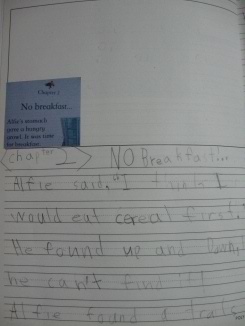 Chapter 2
No breakfast...
Alfie's stomach
gave a hungry
growl. It was time
for breakfast.
Chapter 2 NO Breakfast...
Alfie said, "I think I
would eat cereal first."
He found up and Down,
he can't find it!
Alfie found a